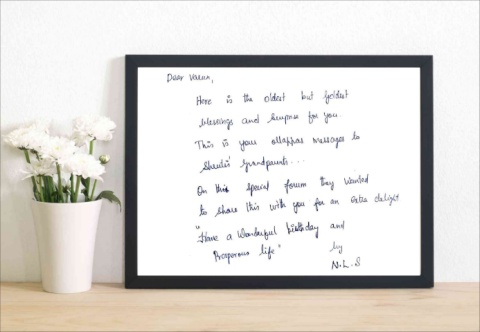 Dear Varun,
Here is the oldest but goldest
blessings and for you.
This is your messages to
grandparents...
On this special forum they wanted
to share this with you for an extra delight
"Have a Wonderful birthday and
Prosperous life"
by
N.L.S